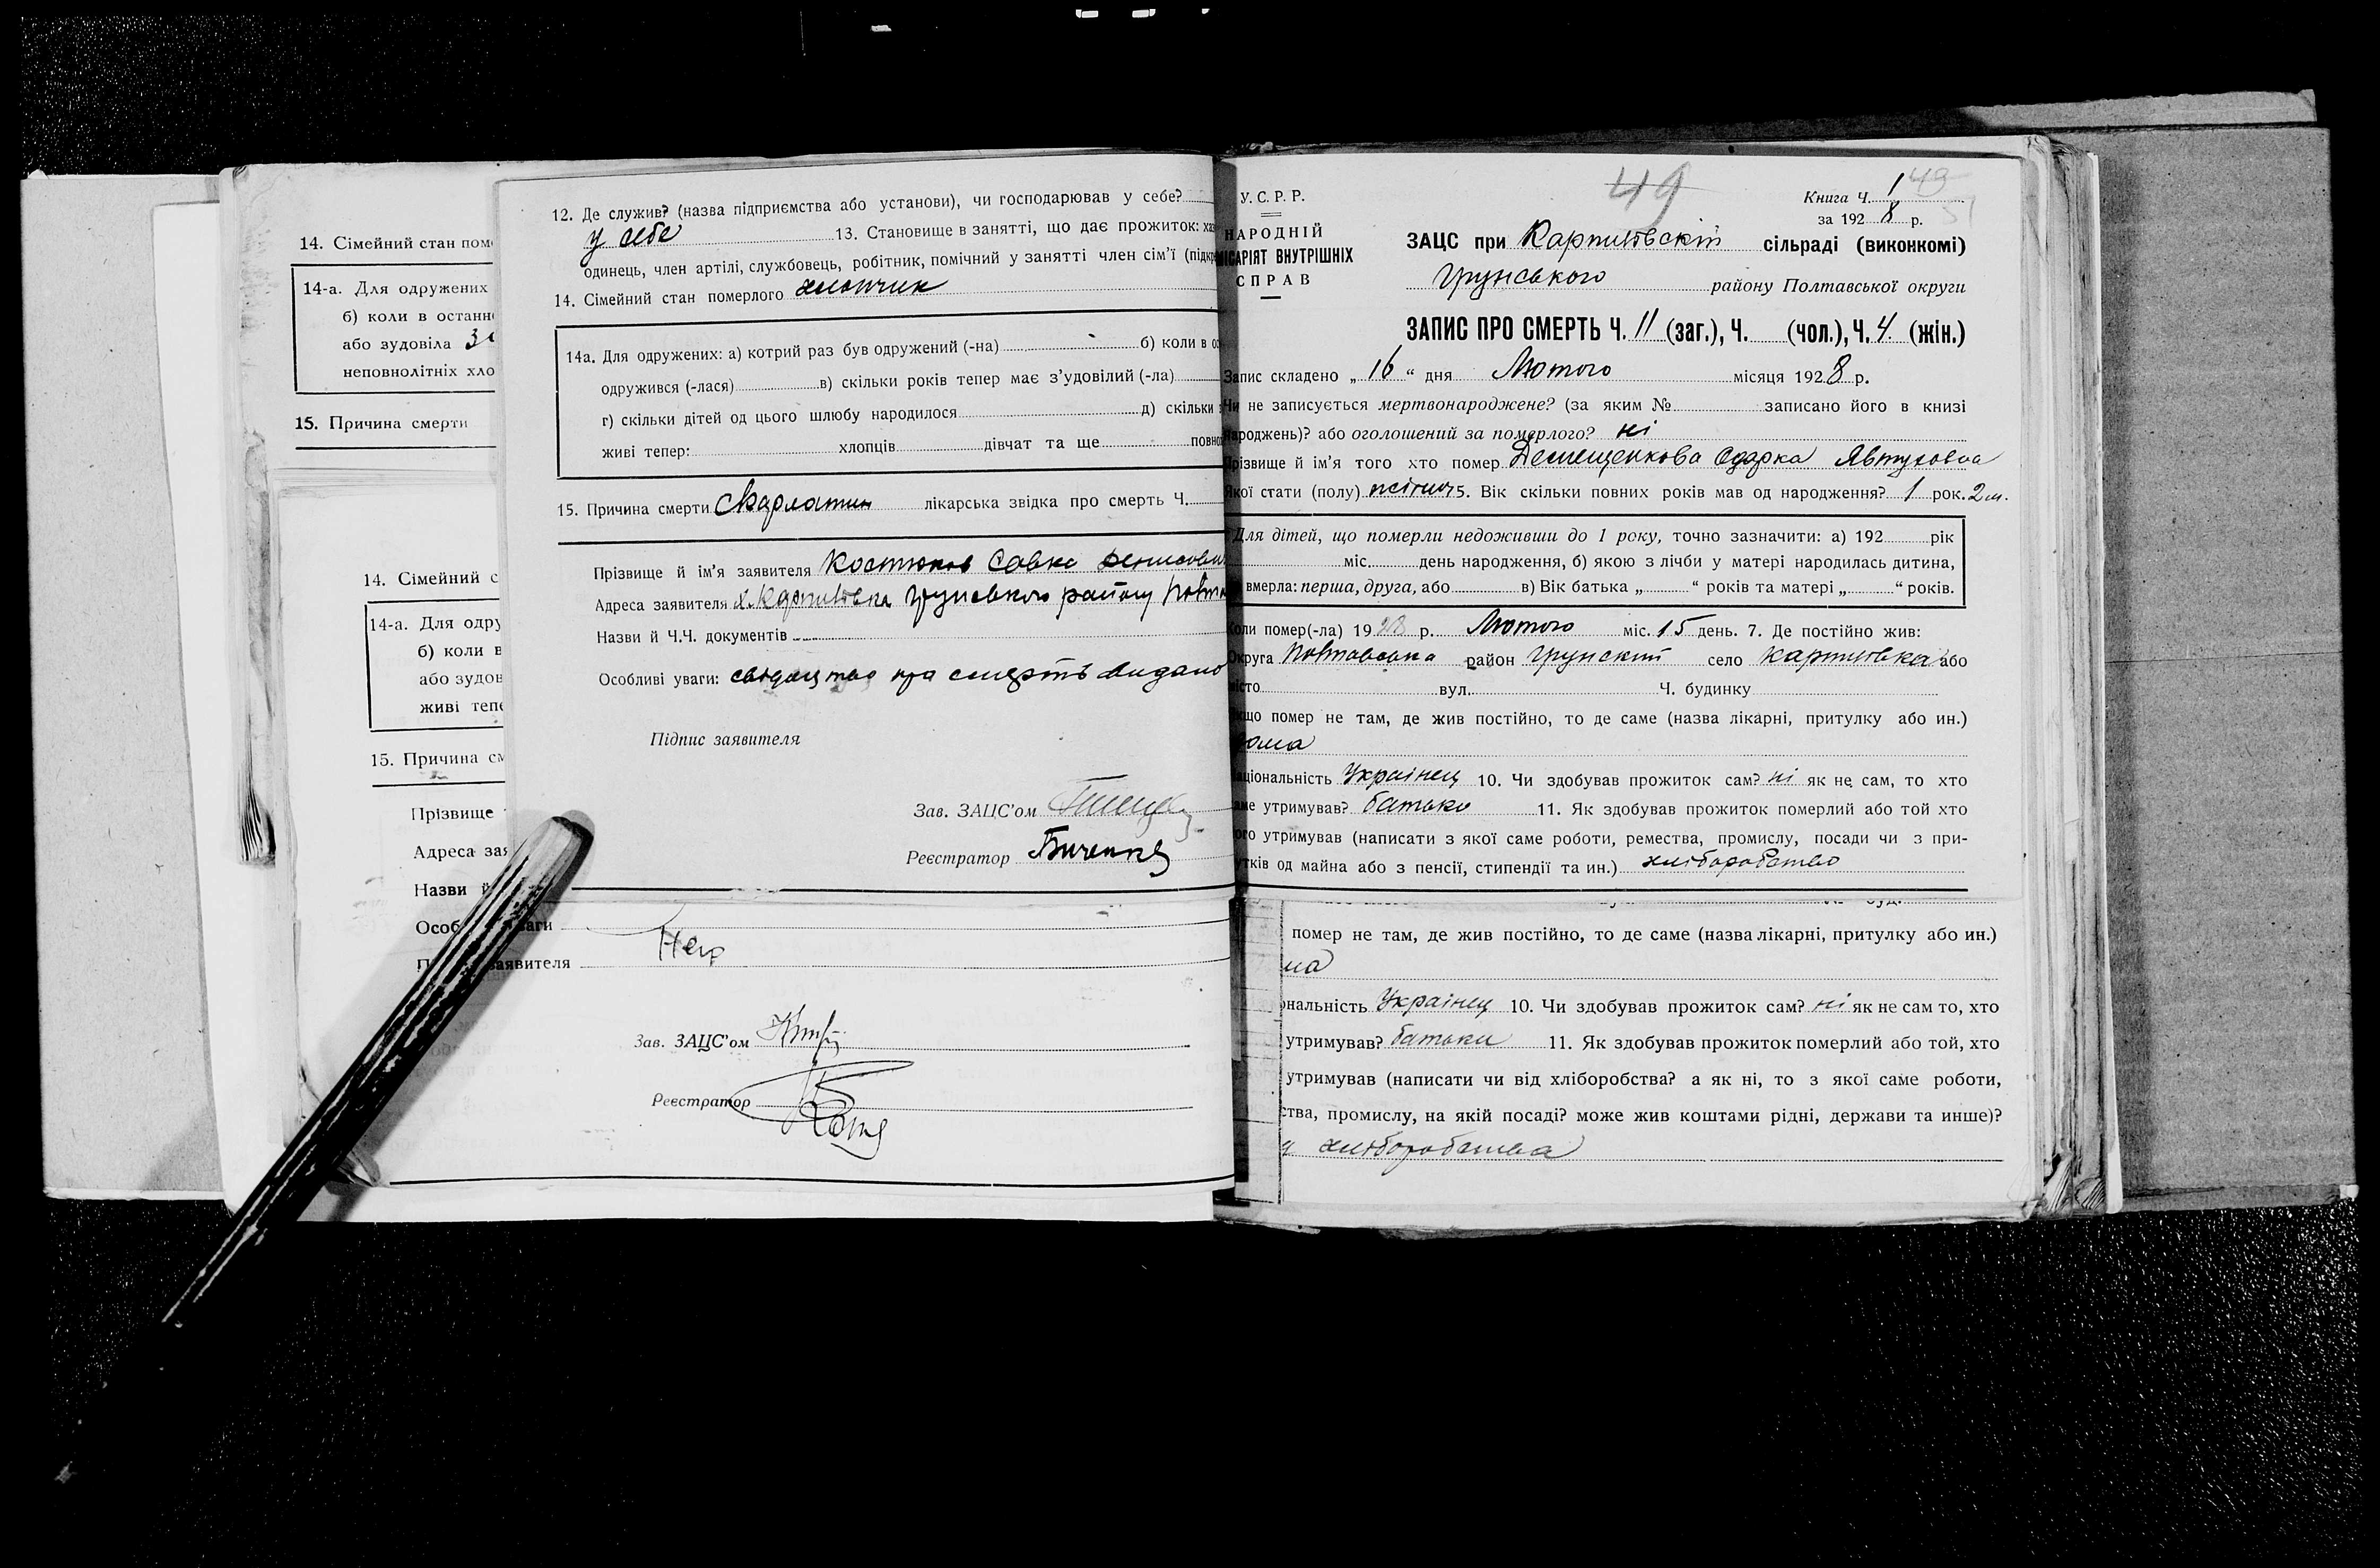 14. Сімейний стан пом
14-а. Для одружених
б) коли в останн
або зудовіла
неповнолітніх хло
15. Причина смерти
14. Сімейний с
14-а. Для одру
б) коли в
або зудов
живі тепе
15. Причина см
Прізвище
Адреса зая
Назви й
Особ
заявителя
12. Де служив? (назва підприємства або установи), чи господарював у себе?
у себе 13. Становище в занятті, що дає прожиток: хаз
одинець, член артілі, службовець, робітник, помічний у занятті член сім'ї (підкр
14. Сімейний стан померлого хлопчик
14а. Для одружених: а) котрий раз був одружений (-на) б) коли в ос
одружився (-лася) в) скільки років тепер має з'удовілий (-ла)
г) скільки дітей од цього шлюбу народилося д) скільки з
живі тепер: хлопців дівчат та ще повно
15. Причина смерти Скарлатин лікарська звідка про смерть Ч.
Прізвище й ім'я заявителя Костюков Савка Денисови
Адреса заявителя х. Карпилівка Грунського району Полта
Назви й Ч.Ч. документів
Особливі уваги: свідоцтво про смерть видано
Підпис заявителя
Зав. ЗАЦС'ом
Реєстратор
Зав. ЗАЦС'ом
Реєстратор
У. С. Р. Р.
НАРОДНІЙ
ІСАРІЯТ ВНУТРІШНІХ
СПРАВ
49
Книга Ч. 1
за 1928 р.
ЗАЦС при Карпилівскій сільраді (виконкомі)
Грунського району Полтавської округи
ЗАПИС ПРО СМЕРТЬ Ч. 11 (заг.), Ч. (чол.), Ч. 4 (жін.)
Запис складено „16“ дня Лютого місяця 1928 р.
Чи не записується мертвонароджене? (за яким № записано його в книзі
народжень)? або оголошений за померлого? ні
Прізвище й ім'я того хто помер Одарка Явтуховна
Якої стати (полу) 5. Вік скільки повних років мав од народження? 1 рок. 2 м.
Для дітей, що померли недоживши до 1 року, точно зазначити: а) 192 рік
міс. день народження, б) якою з лічби у матері народилась дитина,
вмерла: перша, друга, або в) Вік батька „ “ років та матері „ “ років.
Коли помер(-ла) 1928 р. Лютого міс. 15 день. 7. Де постійно жив:
Округа Полтавська район Грунский село Карпилівка або
місто вул. Ч. будинку
що помер не там, де жив постійно, то де саме (назва лікарні, притулку або ин.)
дома
національність Українец 10. Чи здобував прожиток сам? ні як не сам, то хто
саме утримував? батько 11. Як здобував прожиток померлий або той хто
його утримував (написати з якої саме роботи, ремества, промислу, посади чи з при-
утків од майна або з пенсії, стипендії та ин.) хліборобство
помер не там, де жив постійно, то де саме (назва лікарні, притулку або ин.)
ма
ональність Українец 10. Чи здобував прожиток сам? ні як не сам то, хто
утримував? батьки 11. Як здобував прожиток померлий або той, хто
утримував (написати чи від хліборобства? а як ні, то з якої саме роботи,
ства, промислу, на якій посаді? може жив коштами рідні, держави та инше)?
хліборобства